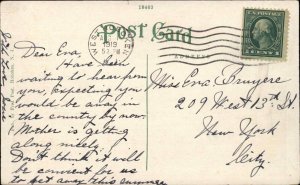 18463
Post Card
ADDRESS
1913
Dear Eva,
Have been
waiting to hear from
you, expecting you
would be away in
the country by now.
Mother is getting
along nicely.
Don't think it will
be convent for us
to get away this summer
Miss Eva Bruyere
209 West 13th St.
New York
City.